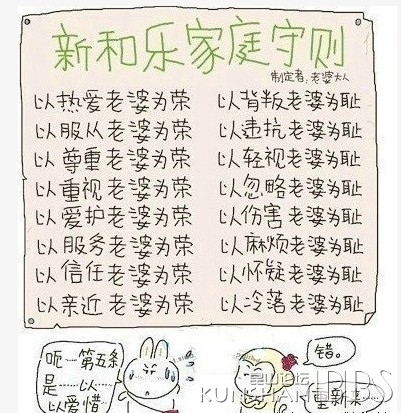 新和乐家庭守则
制定者:老婆大人
以热爱老婆为荣 以背叛老婆为耻
以服从老婆为荣 以违抗老婆为耻
以尊重老婆为荣 以轻视老婆为耻
以重视老婆为荣 以忽略老婆为耻
以爱护老婆为荣 以伤害老婆为耻
以服务老婆为荣 以麻烦老婆为耻
以信任老婆为荣 以怀疑老婆为耻
以亲近老婆为荣 以冷落老婆为耻
呃……第五条
是……以……
以爱惜
错。
重新来
昆山论坛
KUNSHAN BBS